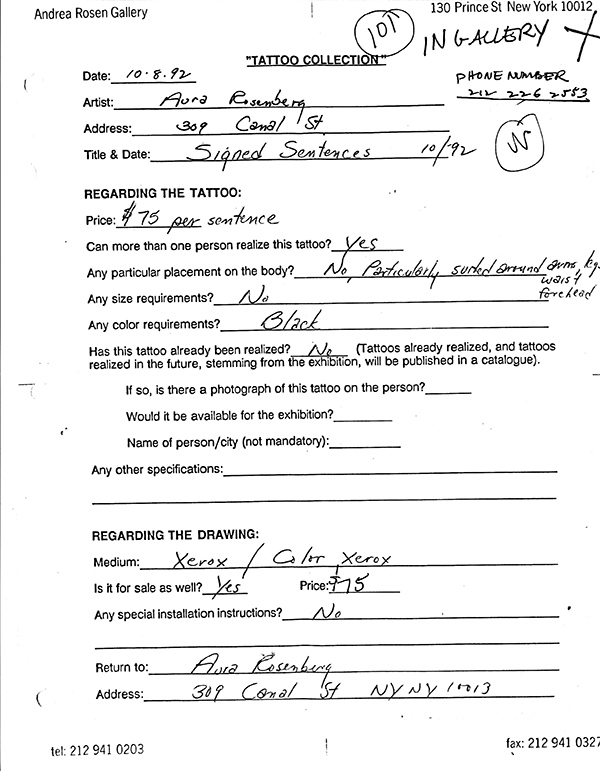 Andrea Rosen Gallery
130 Prince St New York 10012
101
IN GALLERY
"TATTOO COLLECTION"
Date: 10·8·92
PHONE NUMBER
212 226 2553
Artist: Aura Rosenberg
Address: 309 Canal St
Title & Date: Signed Sentences 10/92
W
REGARDING THE TATTOO:
Price: $75 per sentence
Can more than one person realize this tattoo? Yes
Any particular placement on the body? No, Particularly suited around arms, leg,
waist
Any size requirements? No
forehead
Any color requirements? Black
Has this tattoo already been realized? No (Tattoos already realized, and tattoos
realized in the future, stemming from the exhibition, will be published in a catalogue).
If so, is there a photograph of this tattoo on the person?
Would it be available for the exhibition?
Name of person/city (not mandatory):
Any other specifications:
REGARDING THE DRAWING:
Medium: Xerox / Color Xerox
Is it for sale as well? Yes Price: $75
Any special installation instructions? No
Return to: Aura Rosenberg
Address: 309 Canal St NY NY 10013
tel: 212 941 0203
fax: 212 941 0327